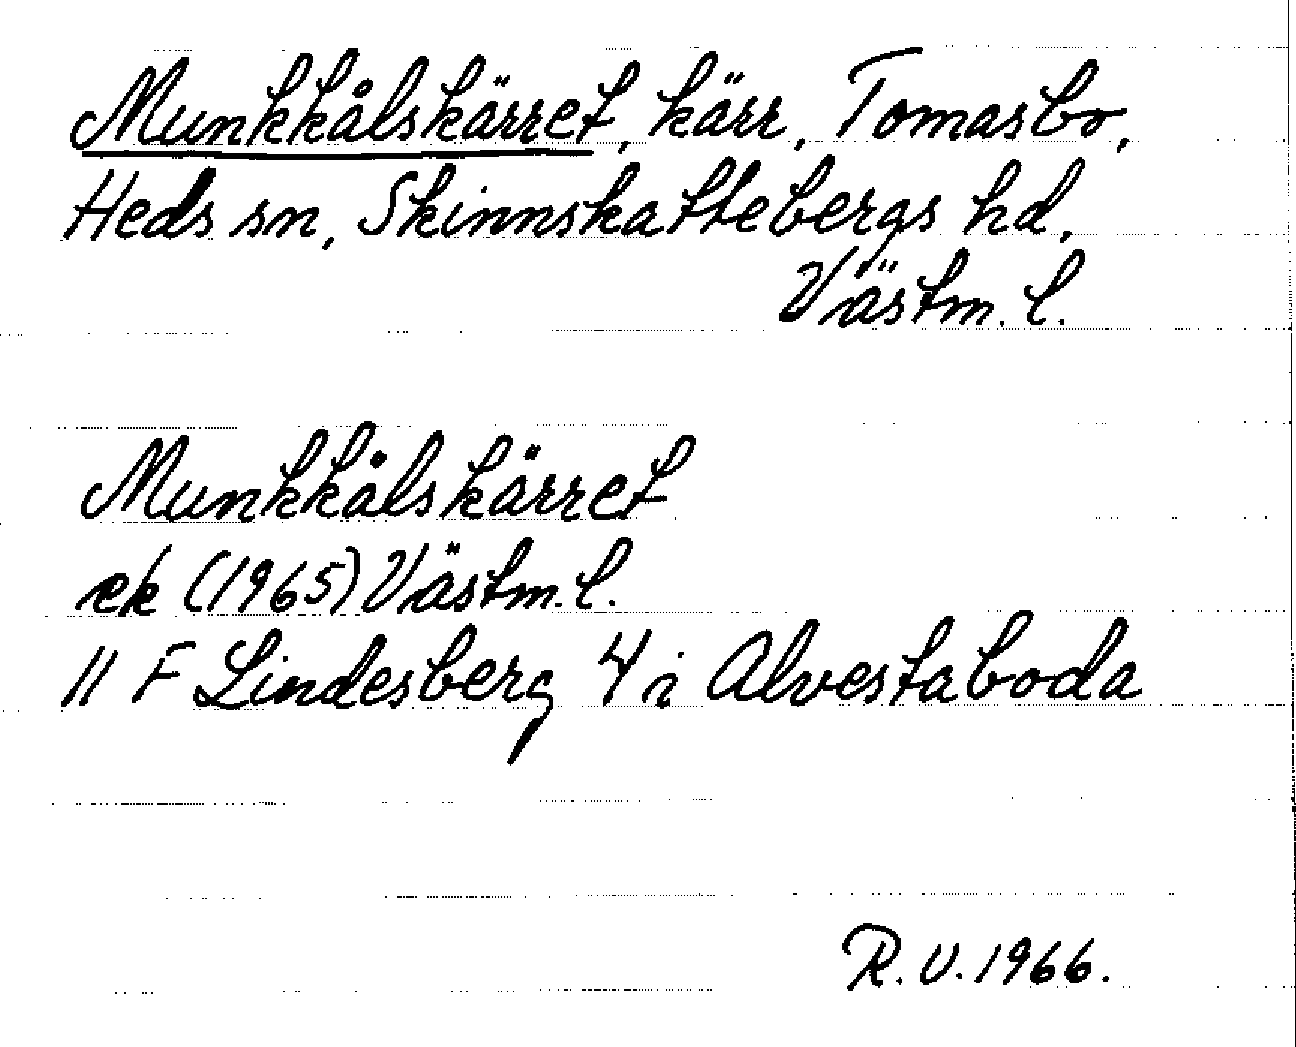 Munkkålskärret, kärr, Tomasbo,
Heds sn, Skinnskattebergs hd,
Västm. l.
Munkkålskärret
ek (1965) Västm. l.
11 F Lindesberg 4 i Alvestaboda
R.V. 1966.